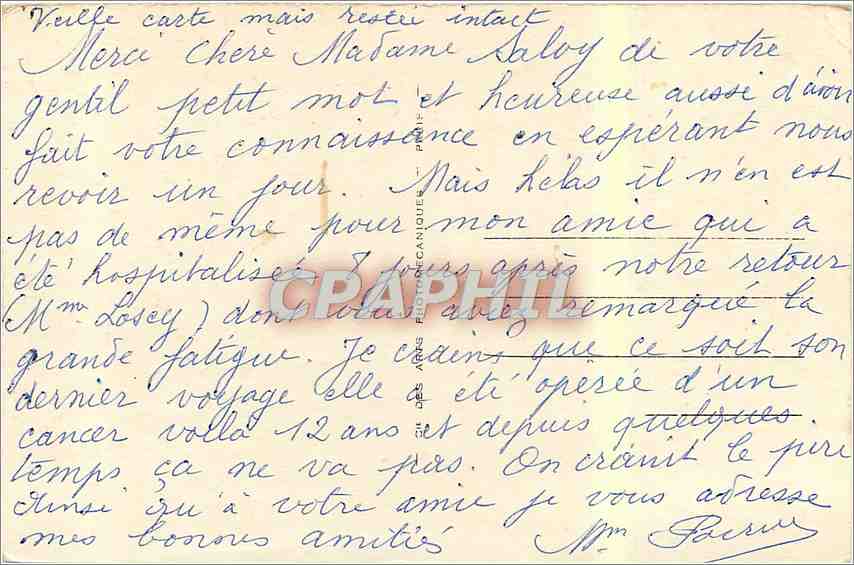 Veille carte mais restée intact
Merci Chère Madame Saloy de votre
gentil petit mot et heureuse aussi d'avoir
fait votre connaissance en espérant nous
revoir un jour. Mais hélas il n'en est
pas de même pour mon amie qui a
été hospitalisée 8 jours après notre retour
(Mme Loscy) dont vous avez remarqué la
grande fatigue. Je crains que ce soit son
dernier voyage elle a été opérée d'un
cancer voila 12 ans et depuis quelques
temps ça ne va pas. On crainit le pire
Ainsi qu'à votre amie je vous adresse
mes bonnes amitiés Mme
DES ARTS PHOTOMECANIQUES — PARIS —
CPAPHIL